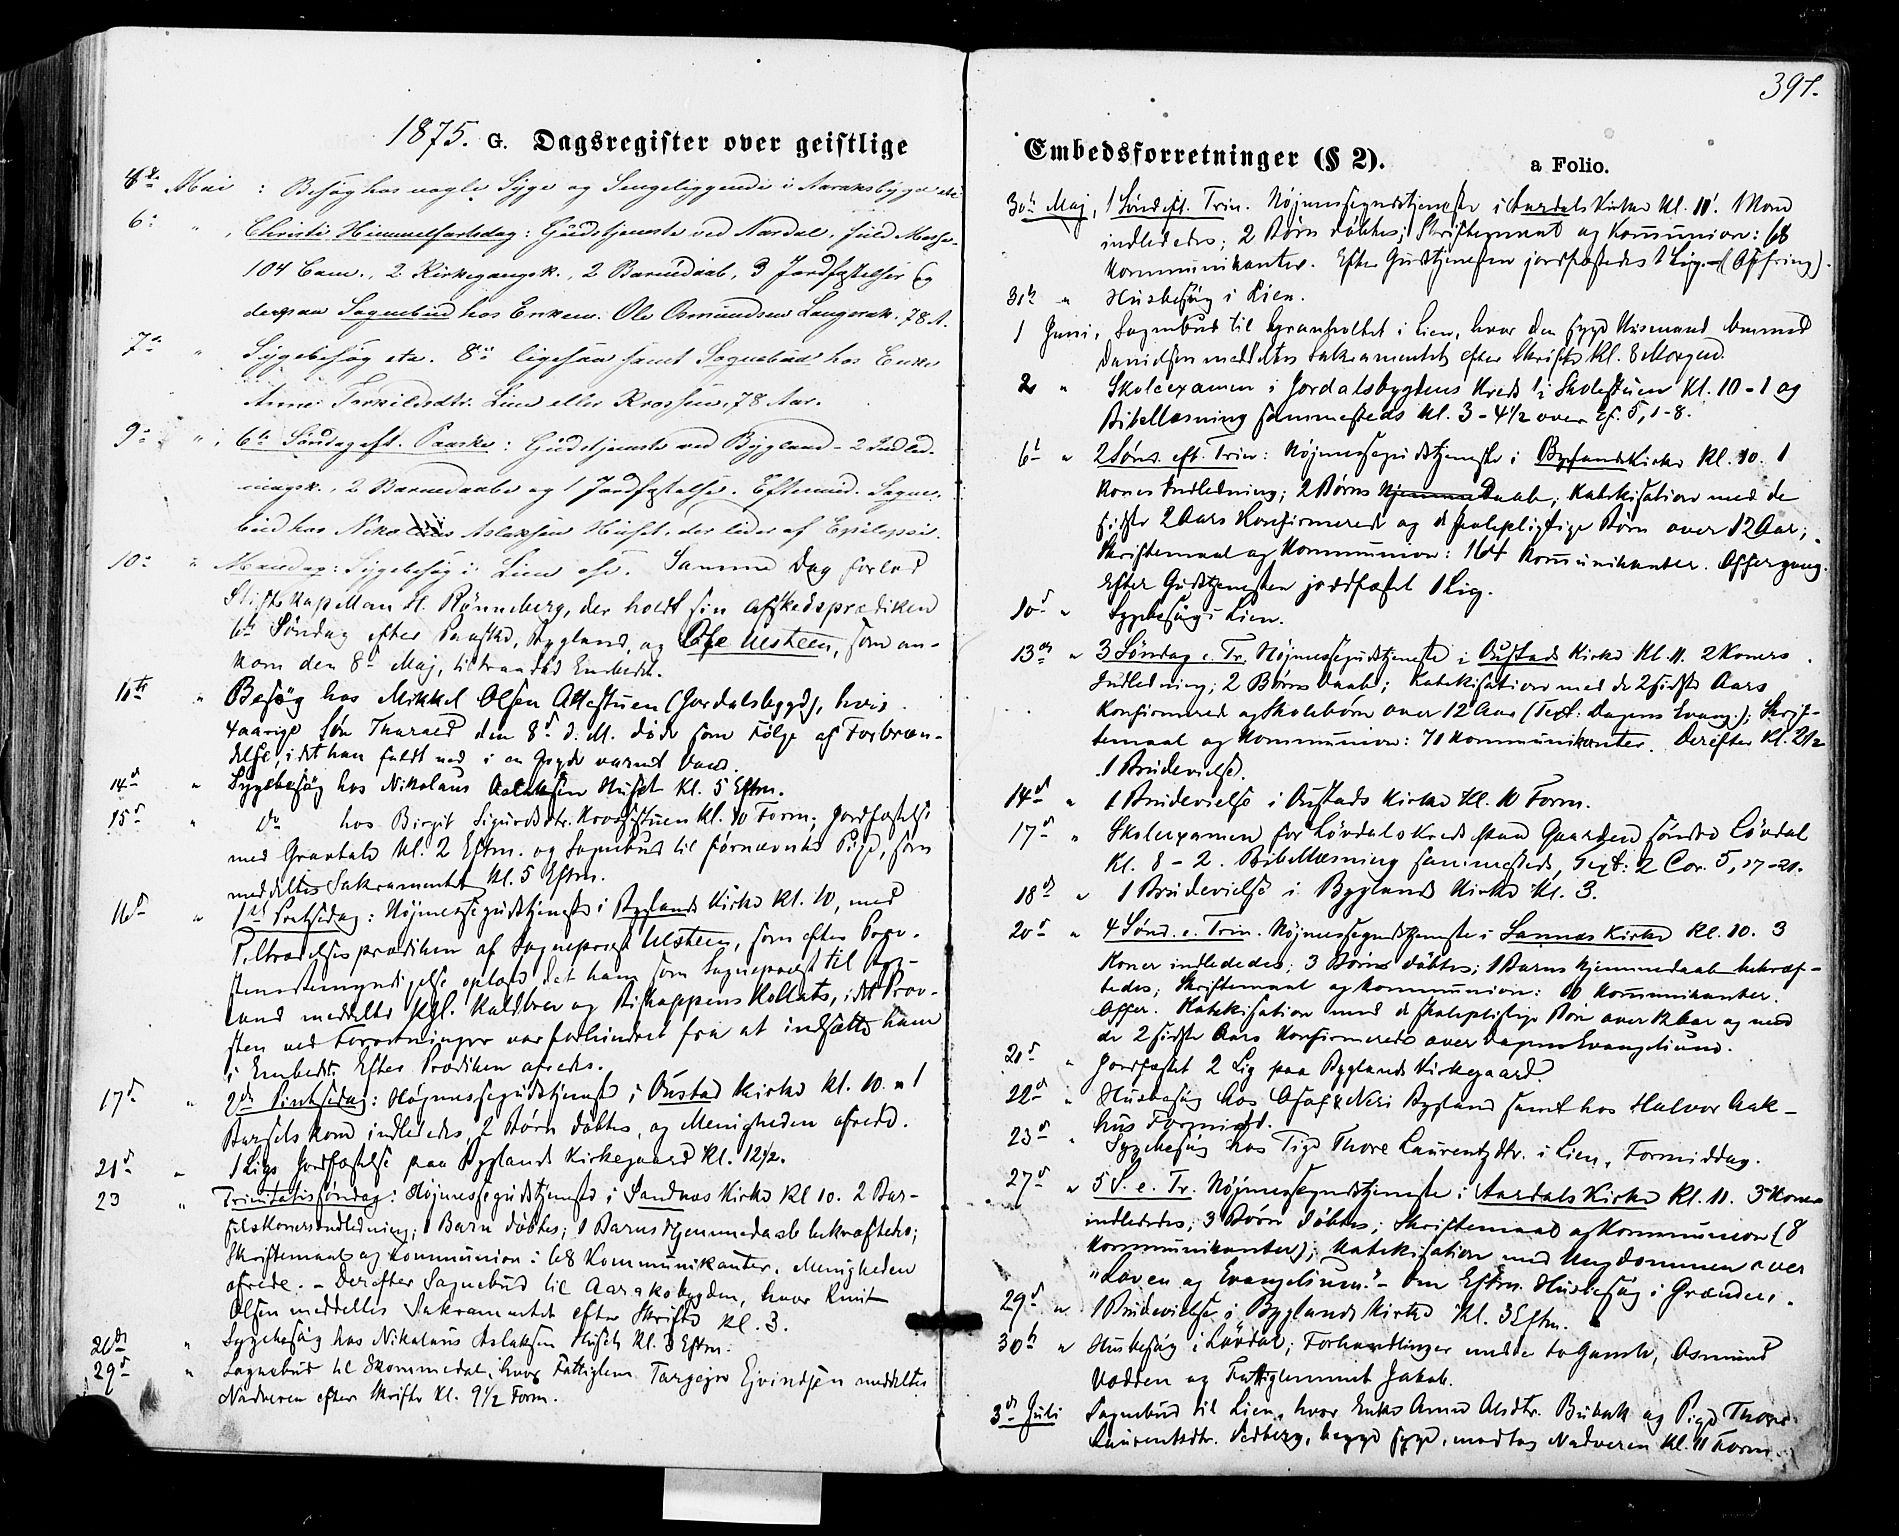 1875. G. Dagsregister over geistlige
4de Mai : Besøg hos nogle Syge og Sengeliggende i Aaraksbygd etc
6: " , Christi Himmelfartsdag: Gudstjeneste ved Aardal, fuld Messe.
104 Com., 2 Kirkegangsk., 2 Barnedaab, 3 Jordfæstelser Og
derpaa Sognebud hos Enken Ole Osmundsen Langerak, 78 A.
7de " Sygebesøg etc. 8de ligesaa samt Sognebud hos Enke
Anne Torkildsdtr. Lien eller Krossen, 78 Aar.
9de " , 6te Søndag eft. Paaske: Gudstjeneste ved Bygland - 2 Indled-
ningsk., 2 Barnedaabe og 1 Jordfæstelse. Eftermd. Sogne-
bud hos Nikolaus Aslaksen Huset, der lider af Epilepsi.
10de " Mandag: Sygebesøg i Lien osv. Samme Dag forlod
Stiftskapellan H. Rønneberg, der holdt sin Afskedsprædiken
6te Søndag efter Paaske, Bygland, og Ole Ulsteen, som an-
kom den 8de Maj, tiltraadte Embedet.
11te " Besøg hos Mikkel Olsen Attestuen (Jordalsbygd), hvis
4aarige Søn Tharald den 8de d. M. døde som Følge af Forbræn-
delse, idet han faldt ned i en Gryde varmt Vand.
14de " Sygebesøg hos Nikolaus Aslaksen Huset Kl. 5 Eftm.
15de " Do hos Birgit Sigurdsdtr. Krossstuen Kl. 10 Form; Jordfæstelse
med Gravtale Kl. 2 Eftm. og Sognebud til førnævnte Pige, som
meddeltes Sakramentet Kl. 5 Eftm.
16de " 1ste Pintsedag: Højmessegudstjeneste i Byglands Kirke Kl. 10, med
Tiltrædelsesprædiken af Sognepræst Ulsteen, som efter Prov-
stens Bemyndigelse oplæste det ham som Sognepræst til Byg-
land meddelte Kgl. Kaldbrev og Biskoppens Kollats, idet Prov-
sten ved Forretninger var forhindret fra at indsætte ham
i Embedet. Efter Prædiken ofredes.
17de " 2den Pintsedag: Højmessegudstjeneste i Oustad Kirke Kl. 10. 1
Barselskone indlededes, 2 Børn døbtes, og Menigheden ofrede.
21de " 1 Ligs Jordfæstelse paa Byglands Kirkegaard Kl. 12½.
23 " Trinitatissøndag: Højmessegudstjeneste i Sandnæs Kirke Kl 10. 2 Bar-
selskoners Indledning; 1 Barn døbtes; 1 Barns Hjemmedaab bekræftedes;
Skriftemaal og Kommunion: 68 Kommunikanter. Menigheden
ofrede. - Derefter Sognebud til Aaraksbygden, hvor Knut
Olsen meddeltes Sakramentet efter Skrifte Kl. 3.
26de " Sygebesøg hos Nikolaus Aslaksen Huset Kl. 3 Eftm.
29de " Sognebud til Skommedal, hvor Fattiglem Targejer Ejvindsen meddeltes
Nadveren efter Skrifte Kl. 9½ Form.
397.
Embedsforretninger (§ 2).
a Folio.
30te Maj, 1 Sønd eft. Trin. Højmessegudstjeneste i Aardals Kirke Kl. 11. 1 Kone
indlededes; 2 Børn døbtes; Skriftemaal og Kommunion: 68
Kommunikanter. Efter Gudstjenesten jordfæstedes 1 Lig. - (Ofring).
31te " Husbesøg i Lien.
1 Juni, Sognebud til Granholtet i Lien, hvor den syge Husmand
Danielsen meddeltes Sakramentet efter Skrifte Kl. 8 Morgen.
2 " Skoleexamen i Jordalsbygdens Kreds i Skolestuen Kl. 10 - 1 og
Bibellæsning sammesteds Kl. 3 - 4½ over Ef. 5, 1-8.
6te " 2 Sønd. eft. Trin: Højmessegudstjeneste i Byglands Kirke Kl. 10. 1
Kones Indledning; 2 Børns Hjemme Daab; Katekisation med de
sidste 2 Aars Konfirmerede og de skolepligtige Børn over 12 Aar;
Skriftemaal og Kommunion: 164 Kommunikanter. Offergang.
Efter Gudstjenesten jordfæstet 1 Lig.
10de " Sygebesøg i Lien.
13de " 3 Søndag e. Tr. Højmessegudstjeneste i Oustads Kirke Kl. 11. 2 Koners
Indledning; 2 Børns Daab; Katekisation med de 2 sidste Aars
Konfirmerede og Skolebørn over 12 Aar (Text: Dagens Evang.); Skrif-
temaal og Kommunion: 71 Kommunikanter. Derefter Kl. 2½
1 Brudevielse.
14de " 1 Brudevielse i Oustads Kirke Kl. 10 Form.
17de " Skoleexamen for Løvdals Kreds paa Gaarden søndre Løvdal
Kl. 8 - 2. Bibellæsning sammesteds, Text: 2 Cor. 5, 17-21.
18de " 1 Brudevielse i Byglands Kirke Kl. 3.
20de " 4 Sønd. e. Trin. Højmessegudstjeneste i Sannæs Kirke Kl. 10. 3
Koner indlededes; 3 Børn døbtes; 1 Barns Hjemmedaab bekræf-
tedes; Skriftemaal og Kommunion: 60 Kommunikanter.
Offer. Katekisation med de skolepligtige Børn over 12 Aar og med
de 2 sidste Aars Konfirmerede over Dagens Evangelium.
21de " Jordfæstet 2 Lig paa Byglands Kirkegaard.
22de " Husbesøg hos Neri Bygland samt hos Halvor Aak-
hus Formidd.
23de " Sygebesøg hos Pige Thore Laurentzdtr. i Lien, Formiddag.
27de " 5 S. e. Tr. Højmessegudstjeneste i Aardals Kirke Kl. 11. 3 Koner
indlededes; 3 Børn døbtes; Skriftemaal og Kommunion (8
Kommunikanter); Katekisation med Ungdommen over
"Loven og Evangelium". - Om Eftm. Husbesøg i Grænden.
29de " 1 Brudevielse i Byglands Kirke Kl. 3 Eftm.
30te " Husbesøg i Løvdal; Forhandlinger med to Gamle, Osmund
Vodden og Fattiglemmet Jakob.
3de Juli Sognebud til Lien, hvor Enke Anne Olsdtr. Bubak og Pige Thore
Laurentsdtr. Sedberg, begge syge, modtog Nadveren Kl. 11 Form.